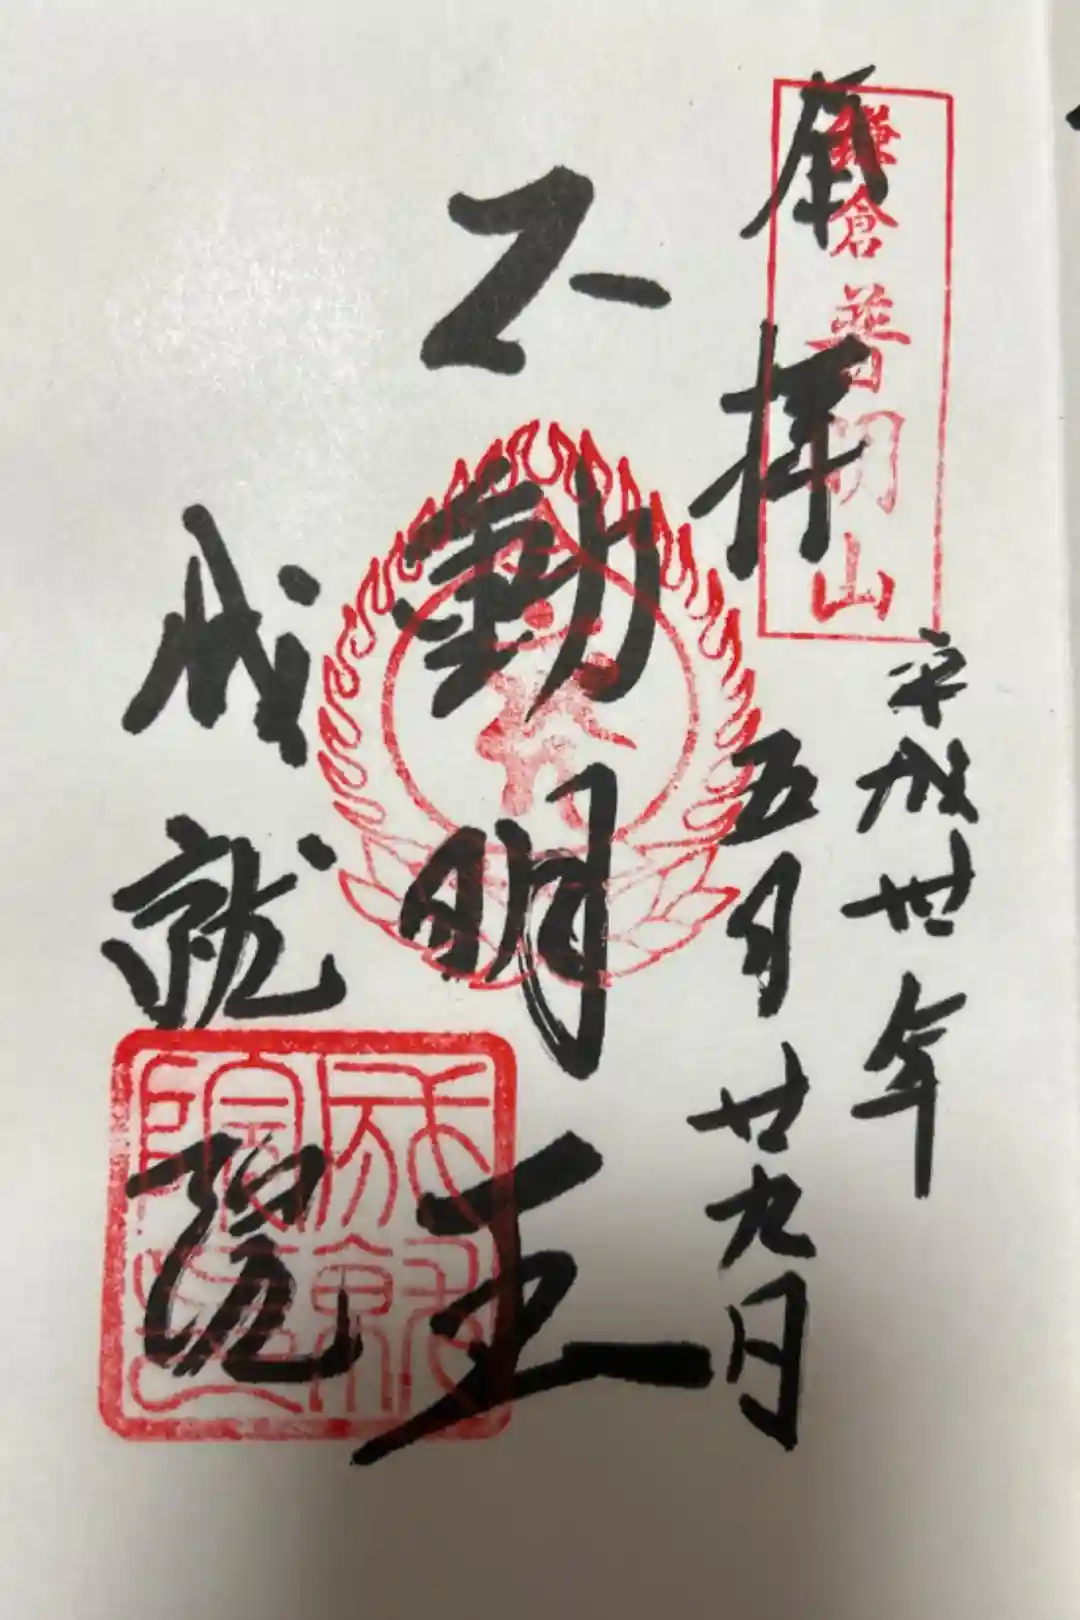 奉拝
鎌倉普明山
平成丗年
五月廿九日
不動明王
成就院
成就院印